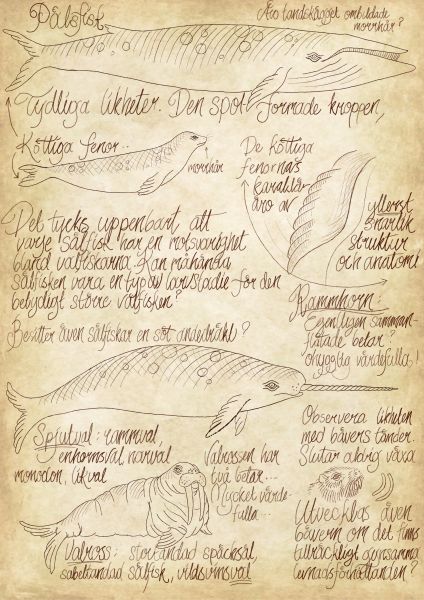 Pälsfisk
Äro landskägget ombildade
morrhår?
Tydliga likheter. Den spolformade kroppen,
Köttiga fenor...
morrhår
De köttiga
fenornas
karaktär
äro av
ytterst
snarlik
struktur
och anatomi
Det tycks uppenbart att
varje sälfisk har en motsvarighet
bland valfiskarna. Kan måhända
sälfisken vara en typ av larvstadie för den
betydligt större valfisken?
Besitter även sälfiskar en söt andedräkt?
Rammhorn:
Egentligen samman-
flätade betar?
ohyggligt värdefulla!
Spjutval: rammval,
enhornsval, narval
monodon, likval
Valrossen har
två betar...
Mycket värde-
fulla...
Observera likheten
med bävers tänder.
Slutar aldrig växa
Utvecklas även
bävern om det finns
tillräckligt gynsamma
levnadsförhållanden?
Valross: stortandad späcksäl,
sabeltandad sälfisk, vildsvinsval